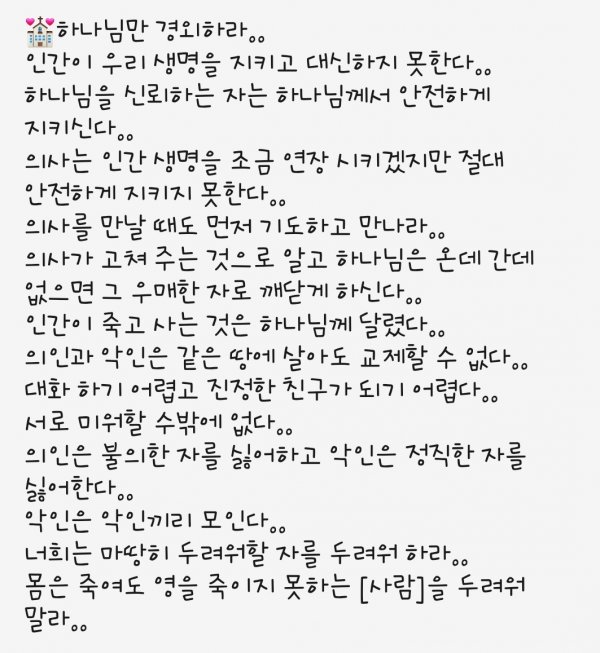 💒하나님만 경외하라。。
인간이 우리 생명을 지키고 대신하지 못한다。。
하나님을 신뢰하는 자는 하나님께서 안전하게
지키신다。。
의사는 인간 생명을 조금 연장 시키겠지만 절대
안전하게 지키지 못한다。。
의사를 만날 때도 먼저 기도하고 만나라。。
의사가 고쳐 주는 것으로 알고 하나님은 온데 간데
없으면 그 우매한 자로 깨닫게 하신다。。
인간이 죽고 사는 것은 하나님께 달렸다。。
의인과 악인은 같은 땅에 살아도 교제할 수 없다。。
대화 하기 어렵고 진정한 친구가 되기 어렵다。。
서로 미워할 수밖에 없다。。
의인은 불의한 자를 싫어하고 악인은 정직한 자를
싫어한다。。
악인은 악인끼리 모인다。。
너희는 마땅히 두려워할 자를 두려워 하라。。
몸은 죽여도 영을 죽이지 못하는 [사람]을 두려워
말라。。